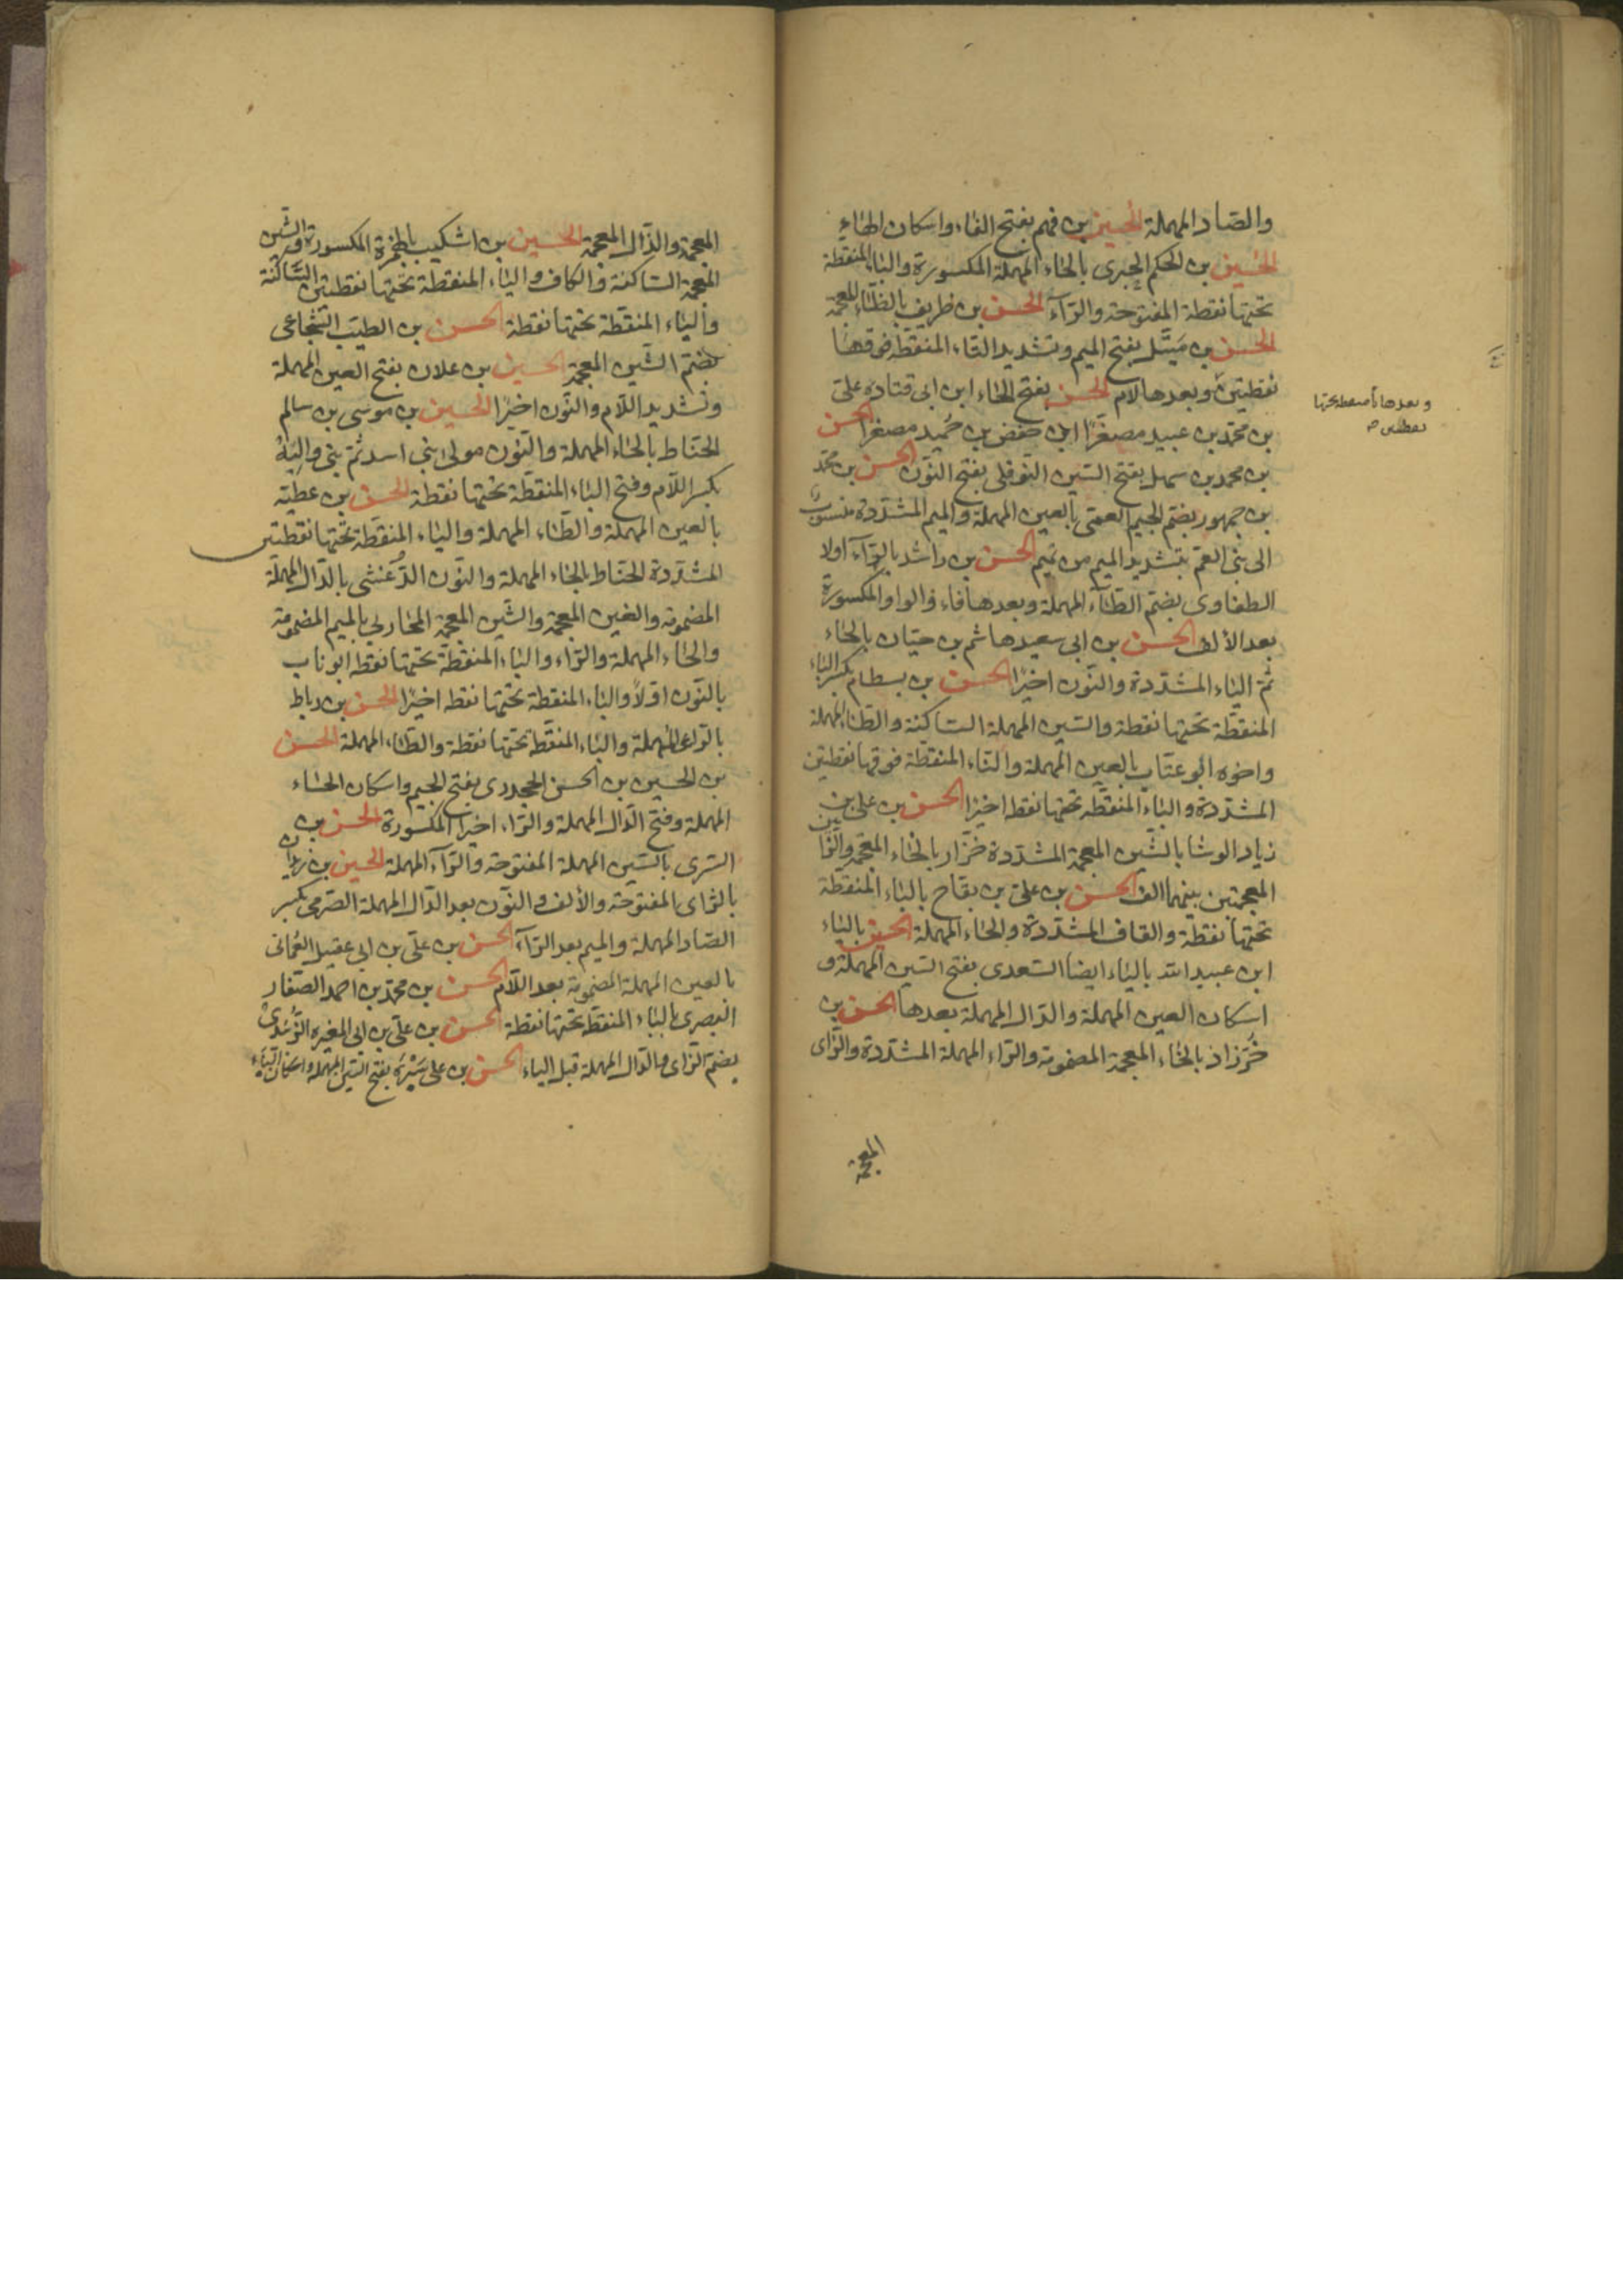 والصاد المهملة الحسين بن فهم بفتح الفاء واسكان الهاء
الحسين بن الحكم الحبرى بالحاء المهملة المكسورة والباء المنقطة
تحتها نقطة المفتوحة والراء الحسن بن ظريف بالظاء المعجمة
الحسن بن متّيل بفتح الميم وتشديد التاء المنقطة فوقها
نقطتين وبعدها لام الحسن بفتح الحاء ابن ابى قتاده على
بن محمد بن عبيد مصغرا ابن حفص بن حُميد مصغرا الحسن
بن محمد بن سهل بفتح السين النوفلى بفتح النون الحسن بن محمد
بن جمهور بضم الجيم العمى بالعين المهملة والميم المشددة منسوب
الى بنى العم بتشديد الميم من تميم الحسن بن راشد بالراء اولا
الطفاوى بضم الطاء المهملة وبعدها فاء والواو المكسورة
بعد الألف الحسن بن ابى سعيد هاشم بن حيان بالحاء
ثم الياء المشددة والنون اخيرا الحسن بن بسطام بكسر الباء
المنقطة تحتها نقطة والسين المهملة الساكنة والطاء المهملة
واخوه ابو عتاب بالعين المهملة والتاء المنقطة فوقها نقطتين
المشددة والباء المنقطة تحتها نقطه اخيرا الحسن بن على بن
زياد الوشا بالشين المعجمة المشددة خزار بالخاء المعجمة والزايين
المعجمتين بينهما الف الحسن بن على بن بقاح بالباء المنقطة
تحتها نقطة والقاف المشددة والحاء المهملة الحسين بالياء
ابن عبيد الله بالياء ايضا السعدى بفتح السين المهملة و
اسكان العين المهملة والدال المهملة بعدها الحسن بن
خُرّزاذ بالخاء المعجمة المضمومة والراء المهملة المشددة والزاى
المعجمة
وبعدها يا منقطة تحتها
نقطتين
المعجمة والذال المعجمة الحسين بن اشكيب بالهمزة المكسورة والشين
المعجمة الساكنة والكاف والياء المنقطة تحتها نقطتين الساكنة
والباء المنقطة تحتها نقطة الحسن بن الطيب الشجاعى
بضم الشين المعجمة الحسين بن علان بفتح العين المهملة
وتشديد اللام والنون اخيرا الحسين بن موسى بن سالم
الحناط بالحاء المهملة والنون مولى بنى اسد ثم بنى والبة
بكسر اللام وفتح الباء المنقطة تحتها نقطة الحسن بن عطية
بالعين المهملة والطاء المهملة والياء المنقطة تحتها نقطتين
المشددة الحناط بالحاء المهملة والنون الدغشى بالدال المهملة
المضمومة والغين المعجمة والشين المعجمة المحاربى بالميم المضمومة
والحاء المهملة والراء والباء المنقطة تحتها نقطه ابو ناب
بالنون اولا والباء المنقطة تحتها نقطه اخيرا الحسن بن رباط
بالراء المهملة والباء المنقطة تحتها نقطة والطاء المهملة الحسن
بن الحسين بن الحسن الجحدرى بفتح الجيم واسكان الحاء
المهملة وفتح الدال المهملة والراء اخيرا المكسورة الحسن بن
السرى بالسين المهملة المفتوحة والراء المهملة الحسين بن زيدان
بالزاى المفتوحة والألف والنون بعد الدال المهملة الصرمى بكسر
الصاد المهملة والميم بعد الراء الحسن بن على بن ابى عقيل العُمانى
بالعين المهملة المضمومة بعد اللام الحسن بن محمد بن احمد الصفار
البصرى بالباء المنقطة تحتها نقطة الحسن بن على بن ابى المغيره الزُبيدى
بضم الزاى والدال المهملة قبل الياء الحسن بن على سَبْره بفتح السين المهملة واسكان الباء